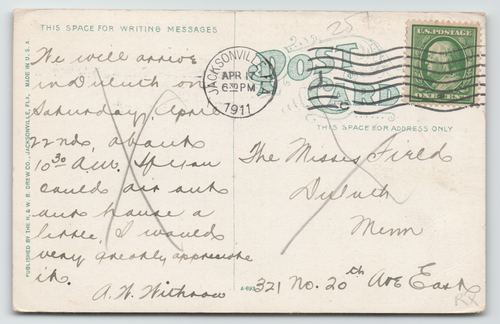 THIS SPACE FOR WRITING MESSAGES
We will arrive
in Duluth on
Saturday, April
22nd, about
10:30 A.M. If you
could air out
our house a
little. I would
very greatly appreciate
it.
A. W. Withrow
PUBLISHED BY THE H. & W. B. DREW CO., JACKSONVILLE, FLA. MADE IN U.S.A.
25
POST
CARD
JACKSONVILLE, FLA
APR 17
630 PM
1911
U.S. POSTAGE
ONE CENT
THIS SPACE FOR ADDRESS ONLY
The Misses Field
Duluth
Minn
321 No. 20th Ave East